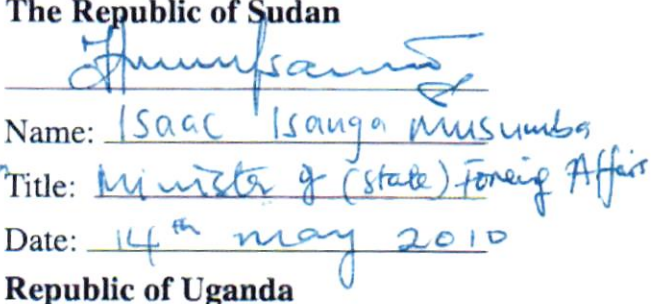 The Republic of Sudan
Name: Isaac Isanga Musumba
Title: Minister of (State) Foreing Affairs
Date: 14th may 2010
Republic of Uganda